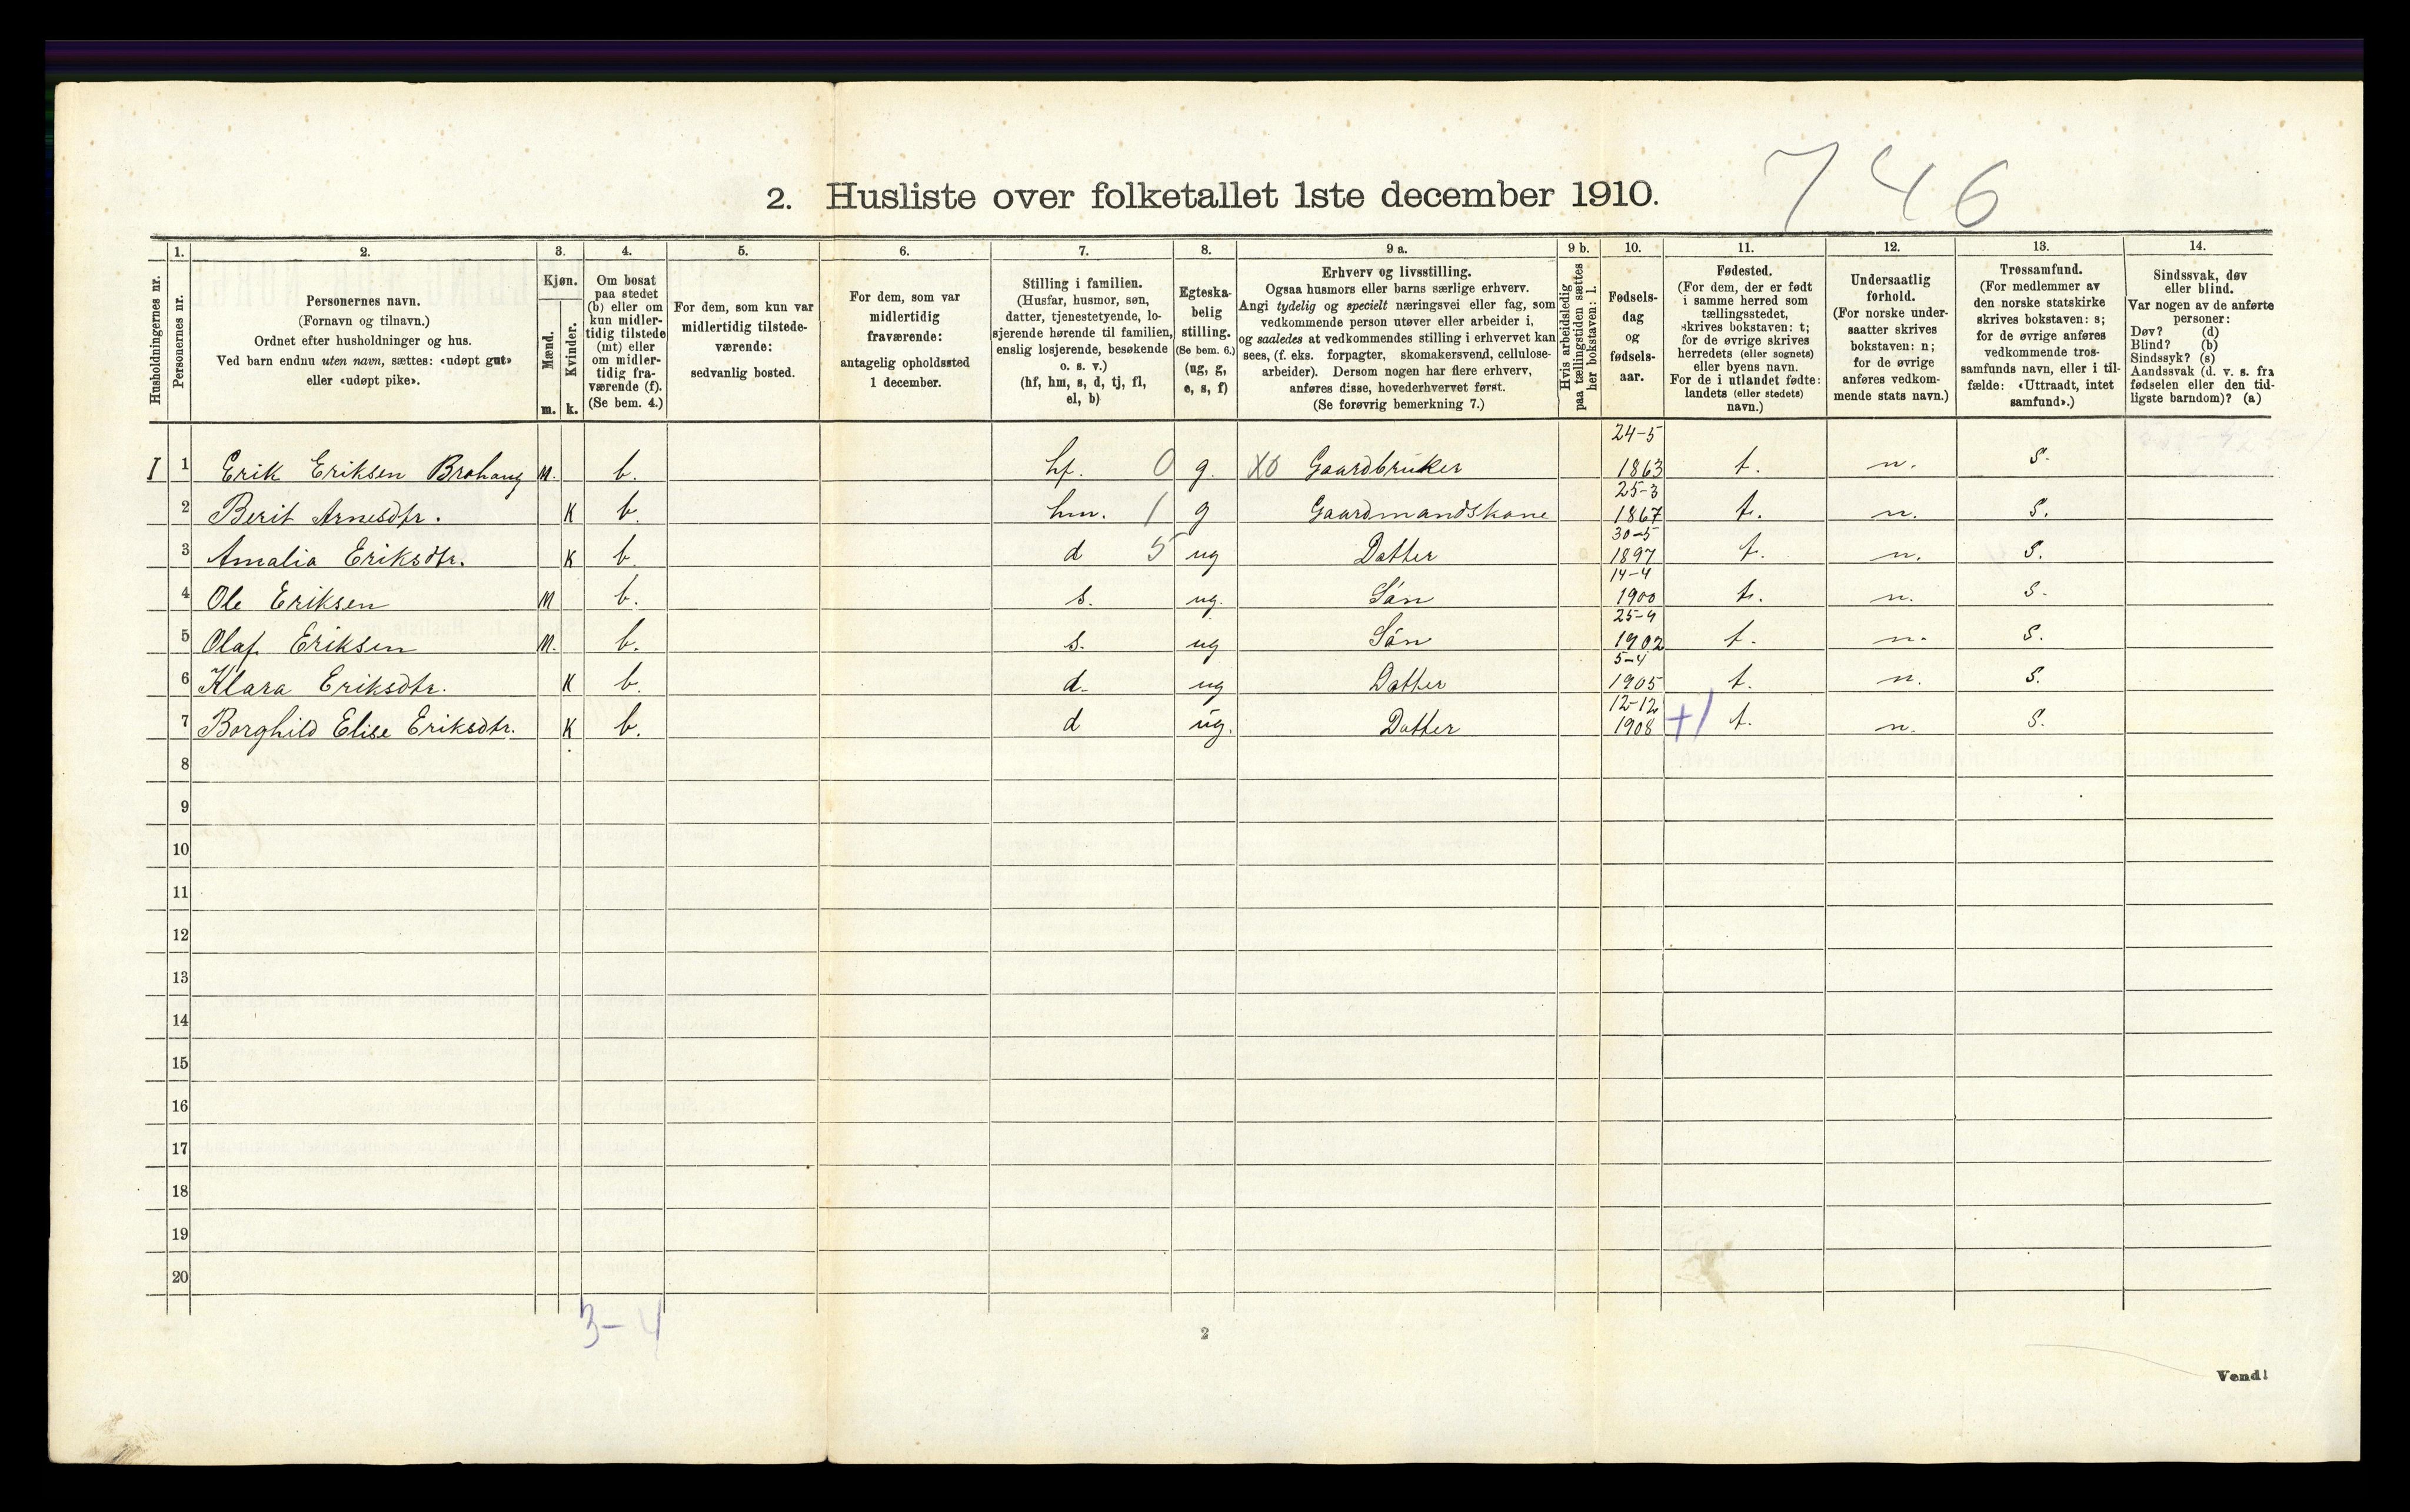 746
2. Husliste over folketallet 1ste december 1910.
Husholdningernes nr.
1.
Personernes nr.
2.
Personernes navn.
(Fornavn og tilnavn.)
Ordnet efter husholdninger og hus.
Ved barn endnu uten navn, sættes: «udøpt gut»
eller «udøpt pike».
3.
Kjøn.
Mænd.
Kvinder.
m. k.
4.
Om bosat
paa stedet
(b) eller om
kun midler-
tidig tilstede
(mt) eller
om midler-
tidig fra-
værende (f).
(Se bem. 4.)
5.
For dem, som kun var
midlertidig tilstede-
værende:
sedvanlig bosted.
6.
For dem, som var
midlertidig
fraværende:
antagelig opholdssted
1 december.
7.
Stilling i familien.
(Husfar, husmor, søn,
datter, tjenestetyende, lo-
sjerende hørende til familien,
enslig losjerende, besøkende
o. s. v.)
(hf, hm, s, d, tj, fl,
el, b)
8.
Egteska-
belig
stilling.
(Se bem. 6.)
(ug, g,
e, s, f)
9 a.
Erhverv og livsstilling.
Ogsaa husmors eller barns særlige erhverv.
Angi tydelig og specielt næringsvei eller fag, som
vedkommende person utøver eller arbeider i,
og saaledes at vedkommendes stilling i erhvervet kan
sees, (f. eks. forpagter, skomakersvend, cellulose-
arbeider). Dersom nogen har flere erhverv,
anføres disse, hovederhvervet først.
(Se forøvrig bemerkning 7.)
9 b.
Hvis arbeidsledig
paa tællingstiden sættes
her bokstaven: l.
10.
Fødsels-
dag
og
fødsels-
aar.
11.
Fødested.
(For dem, der er født
i samme herred som
tællingsstedet,
skrives bokstaven: t;
for de øvrige skrives
herredets (eller sognets)
eller byens navn.
For de i utlandet fødte:
landets (eller stedets)
navn.)
12.
Undersaatlig
forhold.
(For norske under-
saatter skrives
bokstaven: n;
for de øvrige
anføres vedkom-
mende stats navn.)
13.
Trossamfund.
(For medlemmer av
den norske statskirke
skrives bokstaven: s;
for de øvrige anføres
vedkommende tros-
samfunds navn, eller i til-
fælde: «Uttraadt, intet
samfund».)
14.
Sindssvak, døv
eller blind.
Var nogen av de anførte
personer:
Døv? (d)
Blind? (b)
Sindssyk? (s)
Aandssvak (d. v. s. fra
fødselen eller den tid-
ligste barndom)? (a)
I 1 Erik Eriksen Brohaug M. b. hf. 0 g. X0 Gaardbruker 24-5 1863 t. n. s.
2 Berit Arnesdtr. K b. hm. 1 g Gaardmandskone 25-3 1867 t. n. s.
3 Amalia Eriksdtr. K b. d 5 ug Datter 30-5 1897 t. n. s.
4 Ole Eriksen M b. s. ug. Søn 14-4 1900 t. n. s.
5 Olaf Eriksen M. b. s. ug Søn 25-9 1902 t. n. s.
6 Klara Eriksdtr. K b. d. ug Datter 5-4 1905 t. n. s.
7 Borghild Elise Eriksdtr. K b. d ug. Datter 12-12 1908 +1 t. n. s.
8
9
10
11
12
13
14
15
16
17
18
19
20
3-4
2
Vend!